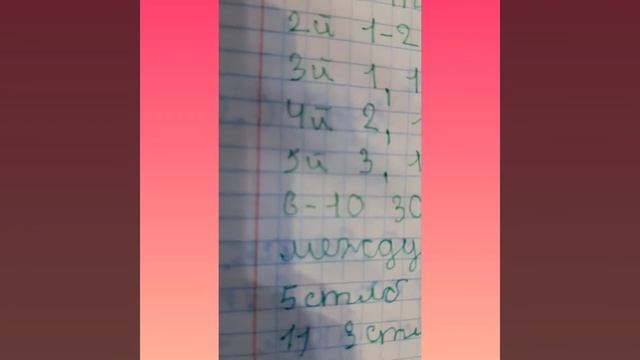 2й 1-2
3й 1, 1
4й 2,
5й 3, 1
6-10 30
между
5 столб
11, 3 ст